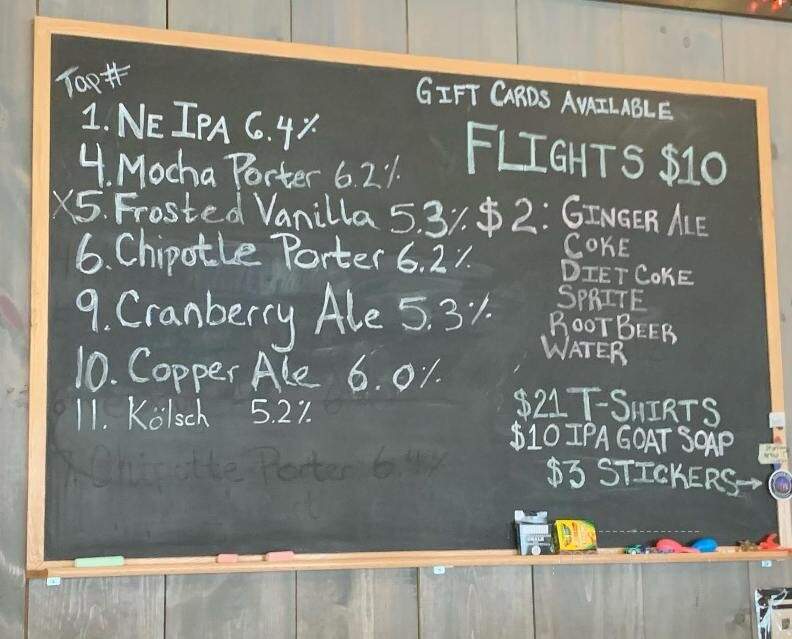 Tap #
1. NE IPA 6.4%
4. Mocha Porter 6.2%
X5. Frosted Vanilla 5.3%
6. Chipotle Porter 6.2%
9. Cranberry Ale 5.3%
10. Copper Ale 6.0%
11. Kölsch 5.2%
Chipotle Porter 6.4%
GIFT CARDS AVAILABLE
FLIGHTS $10
$2: GINGER ALE
COKE
DIET COKE
SPRITE
ROOT BEER
WATER
$21 T-SHIRTS
$10 IPA GOAT SOAP
$3 STICKERS→